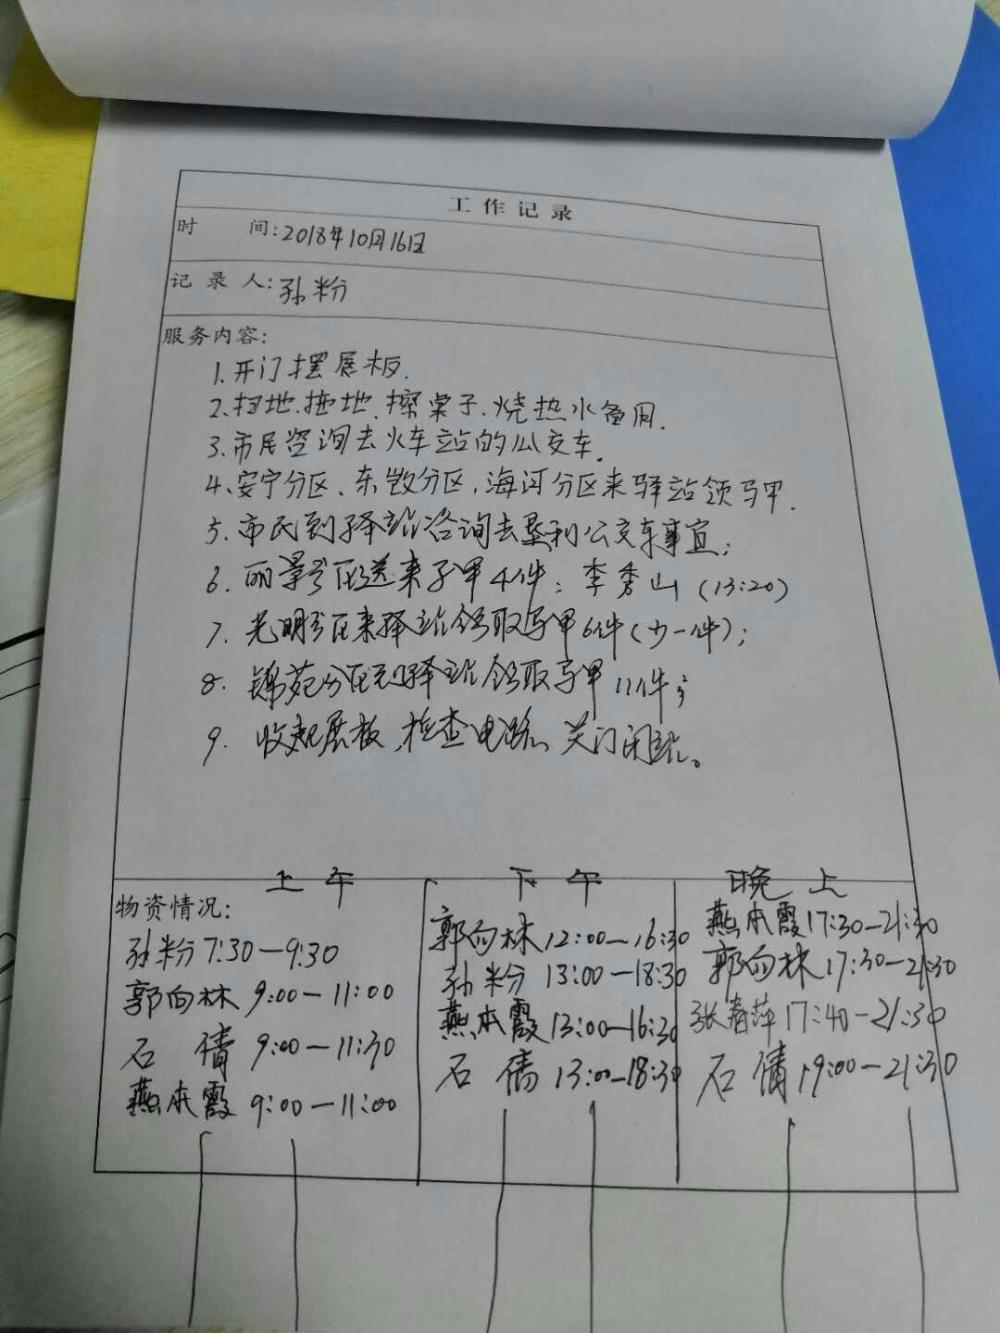 工作记录
时 间:2018年10月16日
记录人:孙粉
服务内容:
1.开门摆展板.
2.扫地.拖地.擦桌子.烧热水备用.
3.市民咨询去火车站的公交车.
4.安宁分区、东营分区,海河分区来驿站领马甲.
5.市民到驿站咨询去垦利公交车事宜;
6.丽景分区送来马甲4件:李秀山(13:20)
7.光明分区来驿站领取马甲6件(少一件);
8.锦苑分区到驿站领取马甲11件;
9.收起展板、检查电路、关门闭站。
上午 下午 晚上
物资情况:
孙粉 7:30—9:30
郭向林 9:00—11:00
石倩 9:00—11:30
燕本霞 9:00—11:00
郭向林 12:00—16:30
孙粉 13:00—18:30
燕本霞 13:00—16:30
石倩 13:00—18:30
燕本霞 17:30—21:30
郭向林 17:30—21:30
张春萍 17:40—21:30
石倩 19:00—21:30